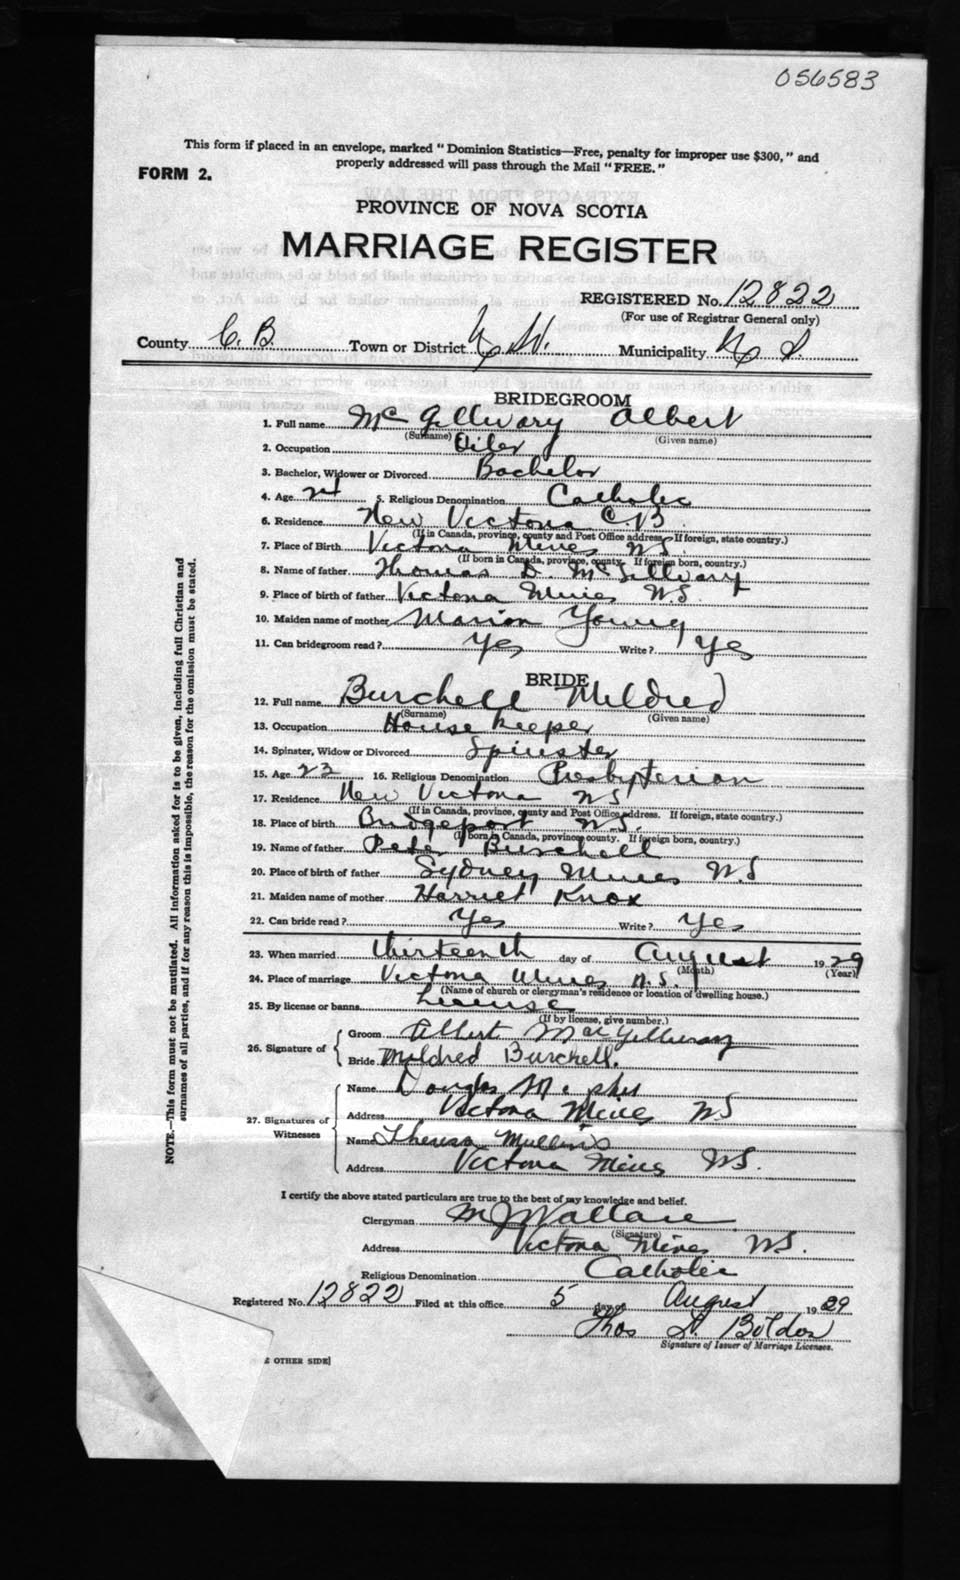 056583
This form if placed in an envelope, marked "Dominion Statistics—Free, penalty for improper use $300," and
properly addressed will pass through the Mail "FREE."
FORM 2.
PROVINCE OF NOVA SCOTIA
MARRIAGE REGISTER
REGISTERED No. 12822
(For use of Registrar General only)
County C. B. Town or District Municipality
BRIDEGROOM
1. Full name McGillivary Albert
(Surname) (Given name)
2. Occupation Oiler
3. Bachelor, Widower or Divorced Bachelor
4. Age 5. Religious Denomination Catholic
6. Residence New Victoria C.B.
(If in Canada, province, county and Post Office address. If foreign, state country.)
7. Place of Birth Victoria Mines N.S.
(If born in Canada, province, county. If foreign born, country.)
8. Name of father Thomas D. McGillvary
9. Place of birth of father Victoria Mines N.S.
10. Maiden name of mother Marion Young
11. Can bridegroom read? Yes Write? Yes
BRIDE
12. Full name Burchell Mildred
(Surname) (Given name)
13. Occupation House keeper
14. Spinster, Widow or Divorced Spinster
15. Age 23 16. Religious Denomination Presbyterian
17. Residence New Victoria N S
(If in Canada, province, county and Post Office address. If foreign, state country.)
18. Place of birth Bridgeport N.S.
(If born in Canada, province county. If foreign born, country.)
19. Name of father Peter Burchell
20. Place of birth of father Sydney Mines N.S
21. Maiden name of mother Harriet Knox
22. Can bride read? Yes Write? Yes
23. When married thirteenth day of August 1929
(Month) (Year)
24. Place of marriage Victoria Mines N.S.
(Name of church or clergyman's residence or location of dwelling house.)
25. By license or banns License
(If by license, give number.)
26. Signature of Groom Albert MacGillivary
Bride Mildred Burchell.
27. Signatures of Witnesses
Name Douglas
Address Victoria Mines N.S
Name Theresa Mullins
Address Victoria Mines N.S.
I certify the above stated particulars are true to the best of my knowledge and belief.
Clergyman M J Wallace
(Signature)
Address Victoria Mines N.S.
Religious Denomination Catholic
Registered No. 12822 Filed at this office 5 day of August 1929
Thos Boldon
Signature of Issuer of Marriage Licenses.
OTHER SIDE]
NOTE.—This form must not be mutilated. All information asked for is to be given, including full Christian and
surnames of all parties, and if for any reason this is impossible, the reason for the omission must be stated.